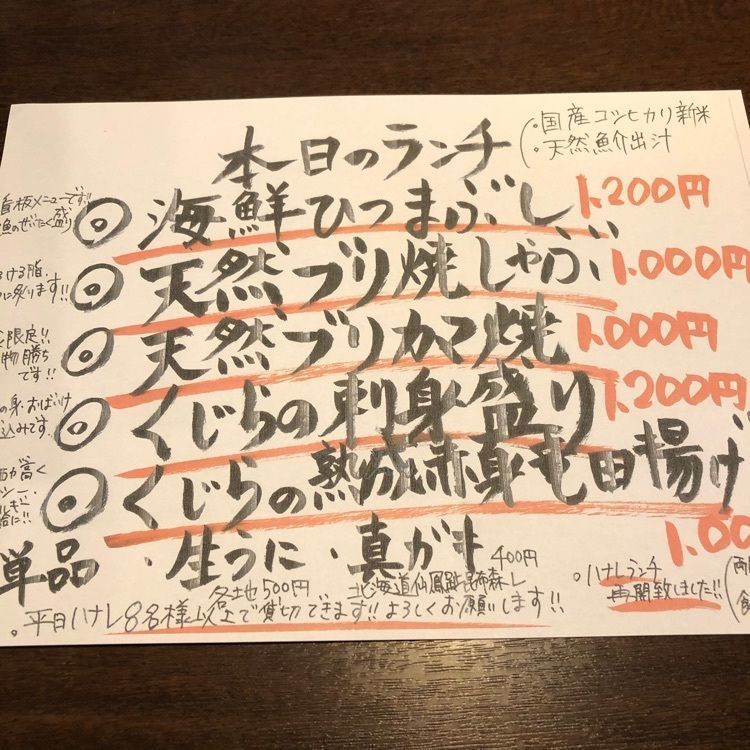 本日のランチ
。国産コシヒカリ新米
。天然魚介出汁
看板メニューです!!
魚のぜいたく盛り
◎海鮮ひつまぶし 1,200円
ける脂、
ります!!
◎天然ブリ焼しゃぶ 1,000円
限定!!
物勝ち
です!!
◎天然ブリカマ焼 1,000円
の身、おばいけ
込みです。
◎くじらの刺身盛り 1,200円
高く
◎くじらの熟成赤身竜田揚げ 1,00
単品 ・生うに ・真ガキ 400円
各地500円 北海道仙鳳趾昆布森
。ハナレランチ
再開致しました!!
。平日ハナレ8名様以上で貸切できます!!よろしくお願いします!!